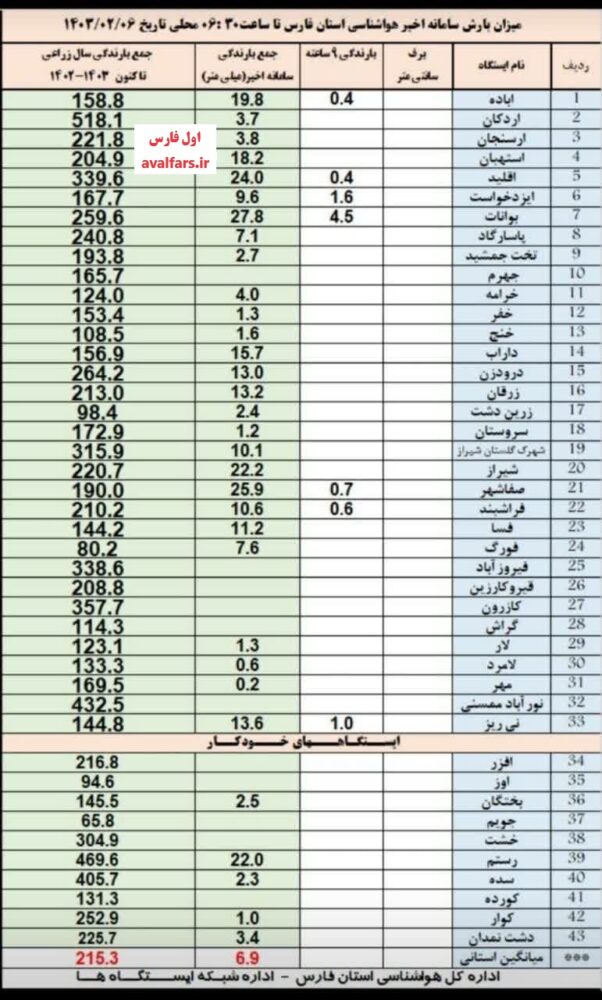 میزان بارش سامانه اخیر هواشناسی استان فارس تا ساعت ۰۶:۳۰ محلی تاریخ ۱۴۰۳/۰۲/۰۶
ردیف نام ایستگاه برف سانتی متر بارندگی ۹ ساعته جمع بارندگی سامانه اخیر(میلی متر) جمع بارندگی سال زراعی ۱۴۰۳-۱۴۰۲ تاکنون
اول فارس
avalfars.ir
۱ اباده 0.4 19.8 158.8
۲ اردکان 3.7 518.1
۳ ارسنجان 3.8 221.8
۴ استهبان 18.2 204.9
۵ اقلید 0.4 24.0 339.6
۶ ایزدخواست 1.6 9.6 167.7
۷ بوانات 4.5 27.8 259.6
۸ پاسارگاد 7.1 240.8
۹ تخت جمشید 2.7 193.8
۱۰ جهرم 165.7
۱۱ خرامه 4.0 124.0
۱۲ خفر 1.3 153.4
۱۳ خنج 1.6 108.5
۱۴ داراب 15.7 156.9
۱۵ درودزن 13.0 264.2
۱۶ زرقان 13.2 213.0
۱۷ زرین دشت 2.4 98.4
۱۸ سروستان 1.2 172.9
۱۹ شهرک گلستان شیراز 10.1 315.9
۲۰ شیراز 22.2 220.7
۲۱ صفاشهر 0.7 25.9 190.0
۲۲ فراشبند 0.6 10.6 210.2
۲۳ فسا 11.2 144.2
۲۴ فورگ 7.6 80.2
۲۵ فیروز آباد 338.6
۲۶ قیروکارزین 208.8
۲۷ کازرون 357.7
۲۸ گراش 114.3
۲۹ لار 1.3 123.1
۳۰ لامرد 0.6 133.3
۳۱ مهر 0.2 169.5
۳۲ نورآباد ممسنی 432.5
۳۳ نی ریز 1.0 13.6 144.8
ایستگاههای خودکار
۳۴ افزر 216.8
۳۵ اوز 94.6
۳۶ بختگان 2.5 145.5
۳۷ جویم 65.8
۳۸ خشت 304.9
۳۹ رستم 22.0 469.6
۴۰ سده 2.3 405.7
۴۱ کورده 131.3
۴۲ کوار 1.0 252.9
۴۳ دشت نمدان 3.4 225.7
*** میانگین استانی 6.9 215.3
اداره کل هواشناسی استان فارس - اداره شبکه ایستگاه ها